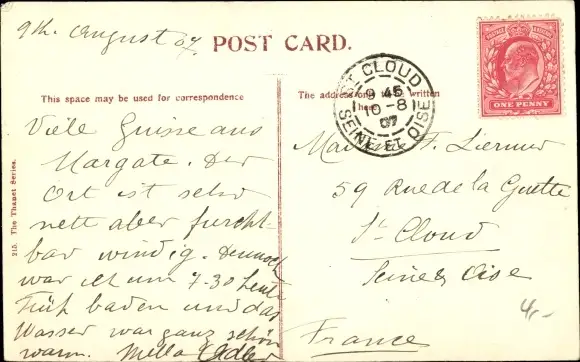 9th. August 07.
POST CARD.
This space may be used for correspondence
The address only to be written here
ST CLOUD
9 45
10-8
07
SEINE ET OISE
ONE PENNY
Viele Grüsse aus
Margate. Der
Ort ist sehr
nett aber furcht-
bar windig. Dennoch
war ich um 7.30 heute
Früh baden und das
Wasser war ganz schön
warm. Mella Adler
F.
59 Rue de la Guette
St. Cloud
Seine & Oise
France
4,-
215. The Thanet Series.